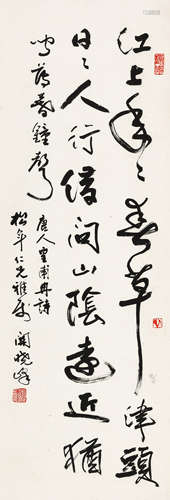 江上年々春草津頭
日々人行借問山陰遠近猶
聞薄暮鐘聲
唐人皇甫冉詩
松年仁兄雅属 関曉峰